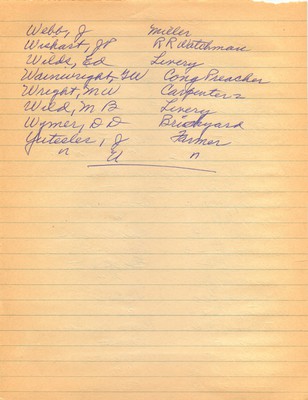 Webb, J Miller
Wichart, JP RR Watchman
Wilds, Ed Livery
Wainwright, GW Cong Preacher
Wright, M W Carpenter
Wild, M B Livery
Wymer, D D Brickyard
Yuteeler, J Farmer
" U "